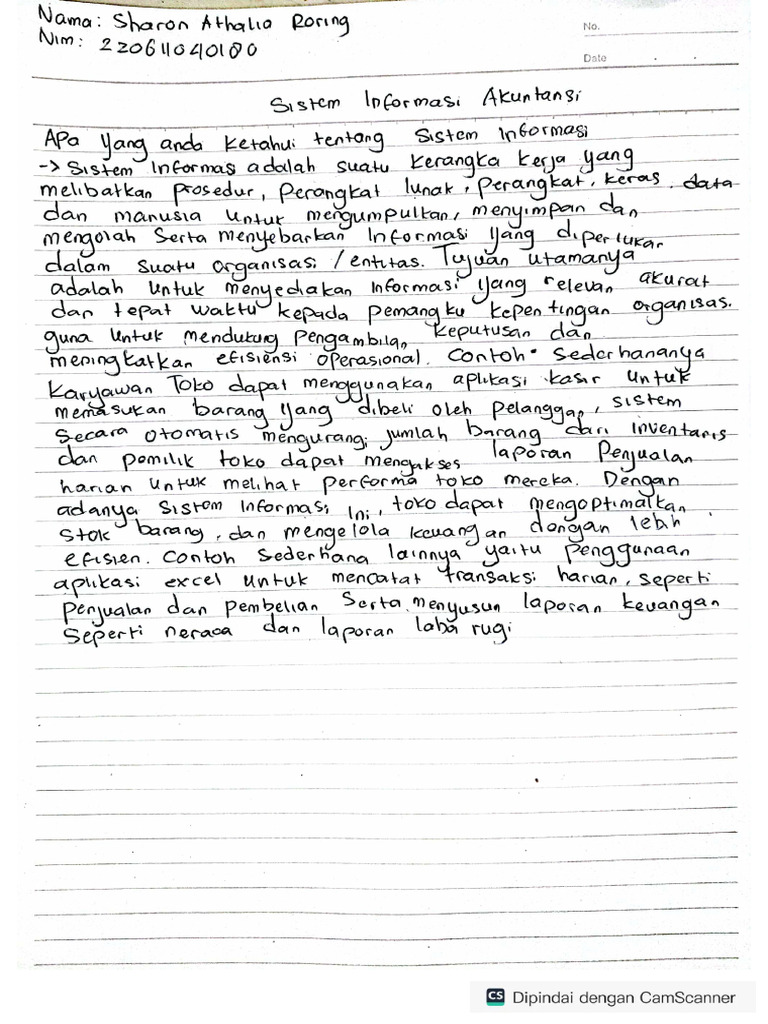 Nama: Sharon Athalia Roring
Nim: 220611040180
No.
Date
Sistem Informasi Akuntansi
Apa yang anda ketahui tentang Sistem Informasi
-> Sistem Informasi adalah suatu kerangka kerja yang
melibatkan prosedur, perangkat lunak, perangkat, keras, data
dan manusia untuk mengumpulkan, menyimpan dan
mengolah serta menyebarkan Informasi yang diperlukan
dalam suatu organisasi / entitas. Tujuan utamanya
adalah untuk menyediakan Informasi yang relevan akurat
dan tepat waktu kepada pemangku kepentingan organisasi
guna untuk mendukung pengambilan keputusan dan
meningkatkan efisiensi operasional. Contoh Sederhananya
Karyawan Toko dapat menggunakan aplikasi kasir untuk
memasukan barang yang dibeli oleh pelanggan, sistem
secara otomatis mengurangi jumlah barang dari inventaris
dan pemilik toko dapat mengakses laporan Penjualan
harian untuk melihat performa toko mereka. Dengan
adanya Sistem Informasi Ini, toko dapat mengoptimalkan
stok barang, dan mengelola keuangan dengan lebih
efisien. Contoh Sederhana lainnya yaitu Penggunaan
aplikasi excel untuk mencatat transaksi harian, seperti
penjualan dan pembelian Serta menyusun laporan keuangan
Seperti neraca dan laporan laba rugi
CS Dipindai dengan CamScanner